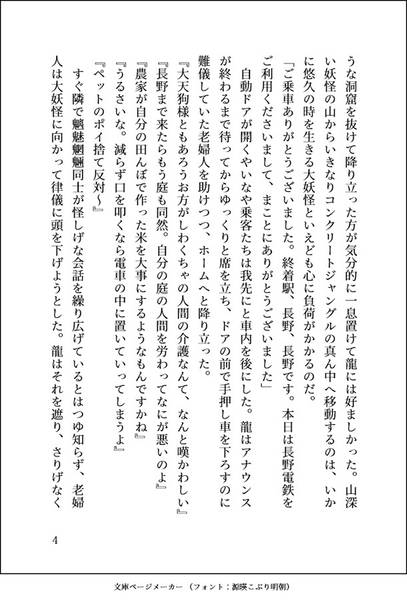 うな洞窟を抜けて降り立った方が気分的に一息置けて龍には好ましかった。山深
い妖怪の山からいきなりコンクリートジャングルの真ん中へ移動するのは、いか
に悠久の時を生きる大妖怪といえども心に負荷がかかるのだ。
「ご乗車ありがとうございました。終着駅、長野、長野です。本日は長野電鉄を
ご利用くださいまして、まことにありがとうございました」
自動ドアが開くやいなや乗客たちは我先にと車内を後にした。龍はアナウンス
が終わるまで待ってからゆっくりと席を立ち、ドアの前で手押し車を下ろすのに
難儀していた老婦人を助けつつ、ホームへと降り立った。
『大天狗様ともあろうお方がしわくちゃの人間の介護なんて、なんと嘆かわしい』
『長野まで来たらもう庭も同然。自分の庭の人間を労わってなにが悪いのよ』
『農家が自分の田んぼで作った米を大事にするようなもんですかね』
『うるさいな。減らず口を叩くなら電車の中に置いていってしまうよ』
『ペットのポイ捨て反対～』
すぐ隣で魑魅魍魎同士が怪しげな会話を繰り広げているとはつゆ知らず、老婦
人は大妖怪に向かって律儀に頭を下げようとした。龍はそれを遮り、さりげなく
4
文庫ページメーカー（フォント：源暎こぶり明朝）